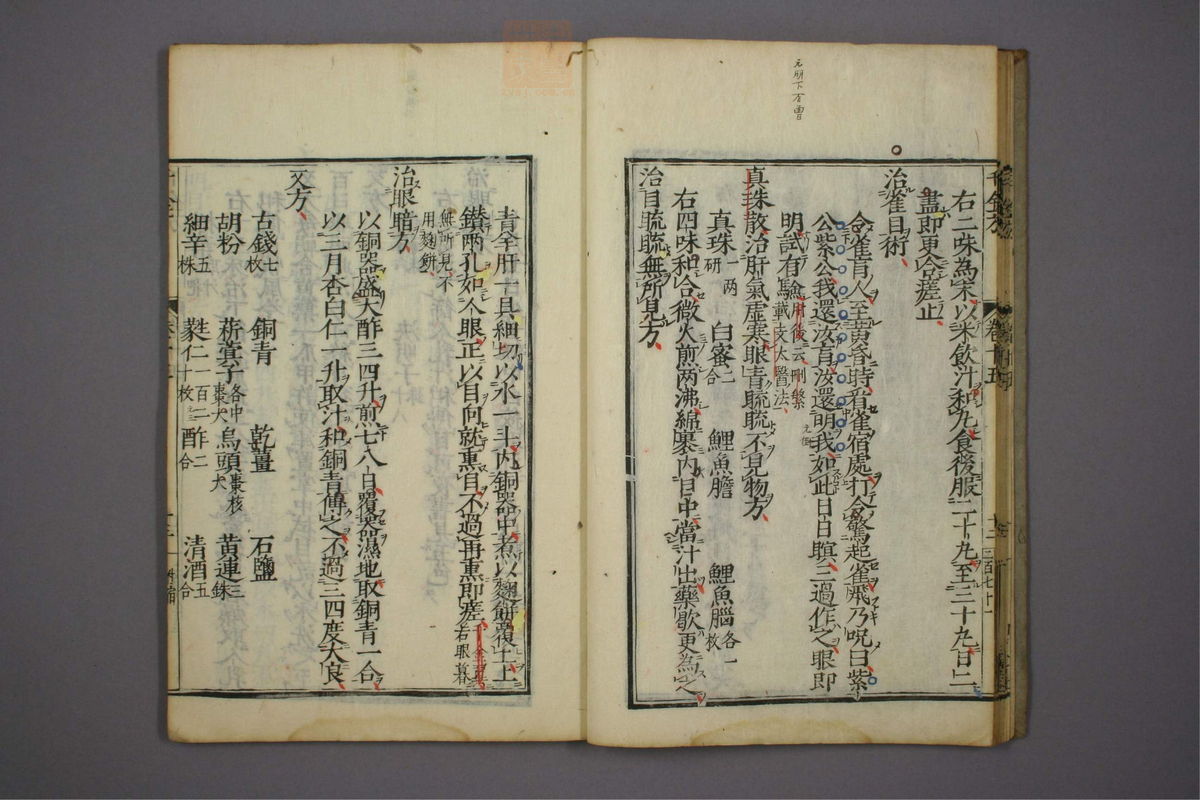 右二味為末以米飲汁和丸食後服二十丸至三十丸日二
盡即更合瘥止
治雀目術
令雀盲人至黄昏時看雀宿處打令驚起雀飛乃呪曰紫
公紫公我還汝盲汝還明我如此日日暝三過作之眼即
明試有驗肘後云刪繁載支太醫法
真珠散治肝氣虚寒眼青䀮䀮不見物方
真珠一兩研 白蜜二合 鯉魚膽 鯉魚腦各一枚
右四味和合微火煎兩沸綿裹内目中當汁出藥歇更為之
治目䀮䀮無所見方
青羊肝一具細切以水一斗内銅器中煮以麹餅覆上上
鑽兩孔如人眼正以目向就熏目不過再熏即瘥千金翼若眼暮無所見不用麹餅
治眼暗方
以銅器盛大酢三四升煎七八日覆器濕地取銅青一合
以三月杏白仁一升取汁和銅青傅之不過三四度大良
又方
古錢七枚 銅青 乾薑 石鹽
胡粉 菥蓂子各中棗大 烏頭棗核大 黄連三銖
細辛五銖 蕤仁一百二十枚 酢二合 清酒五合